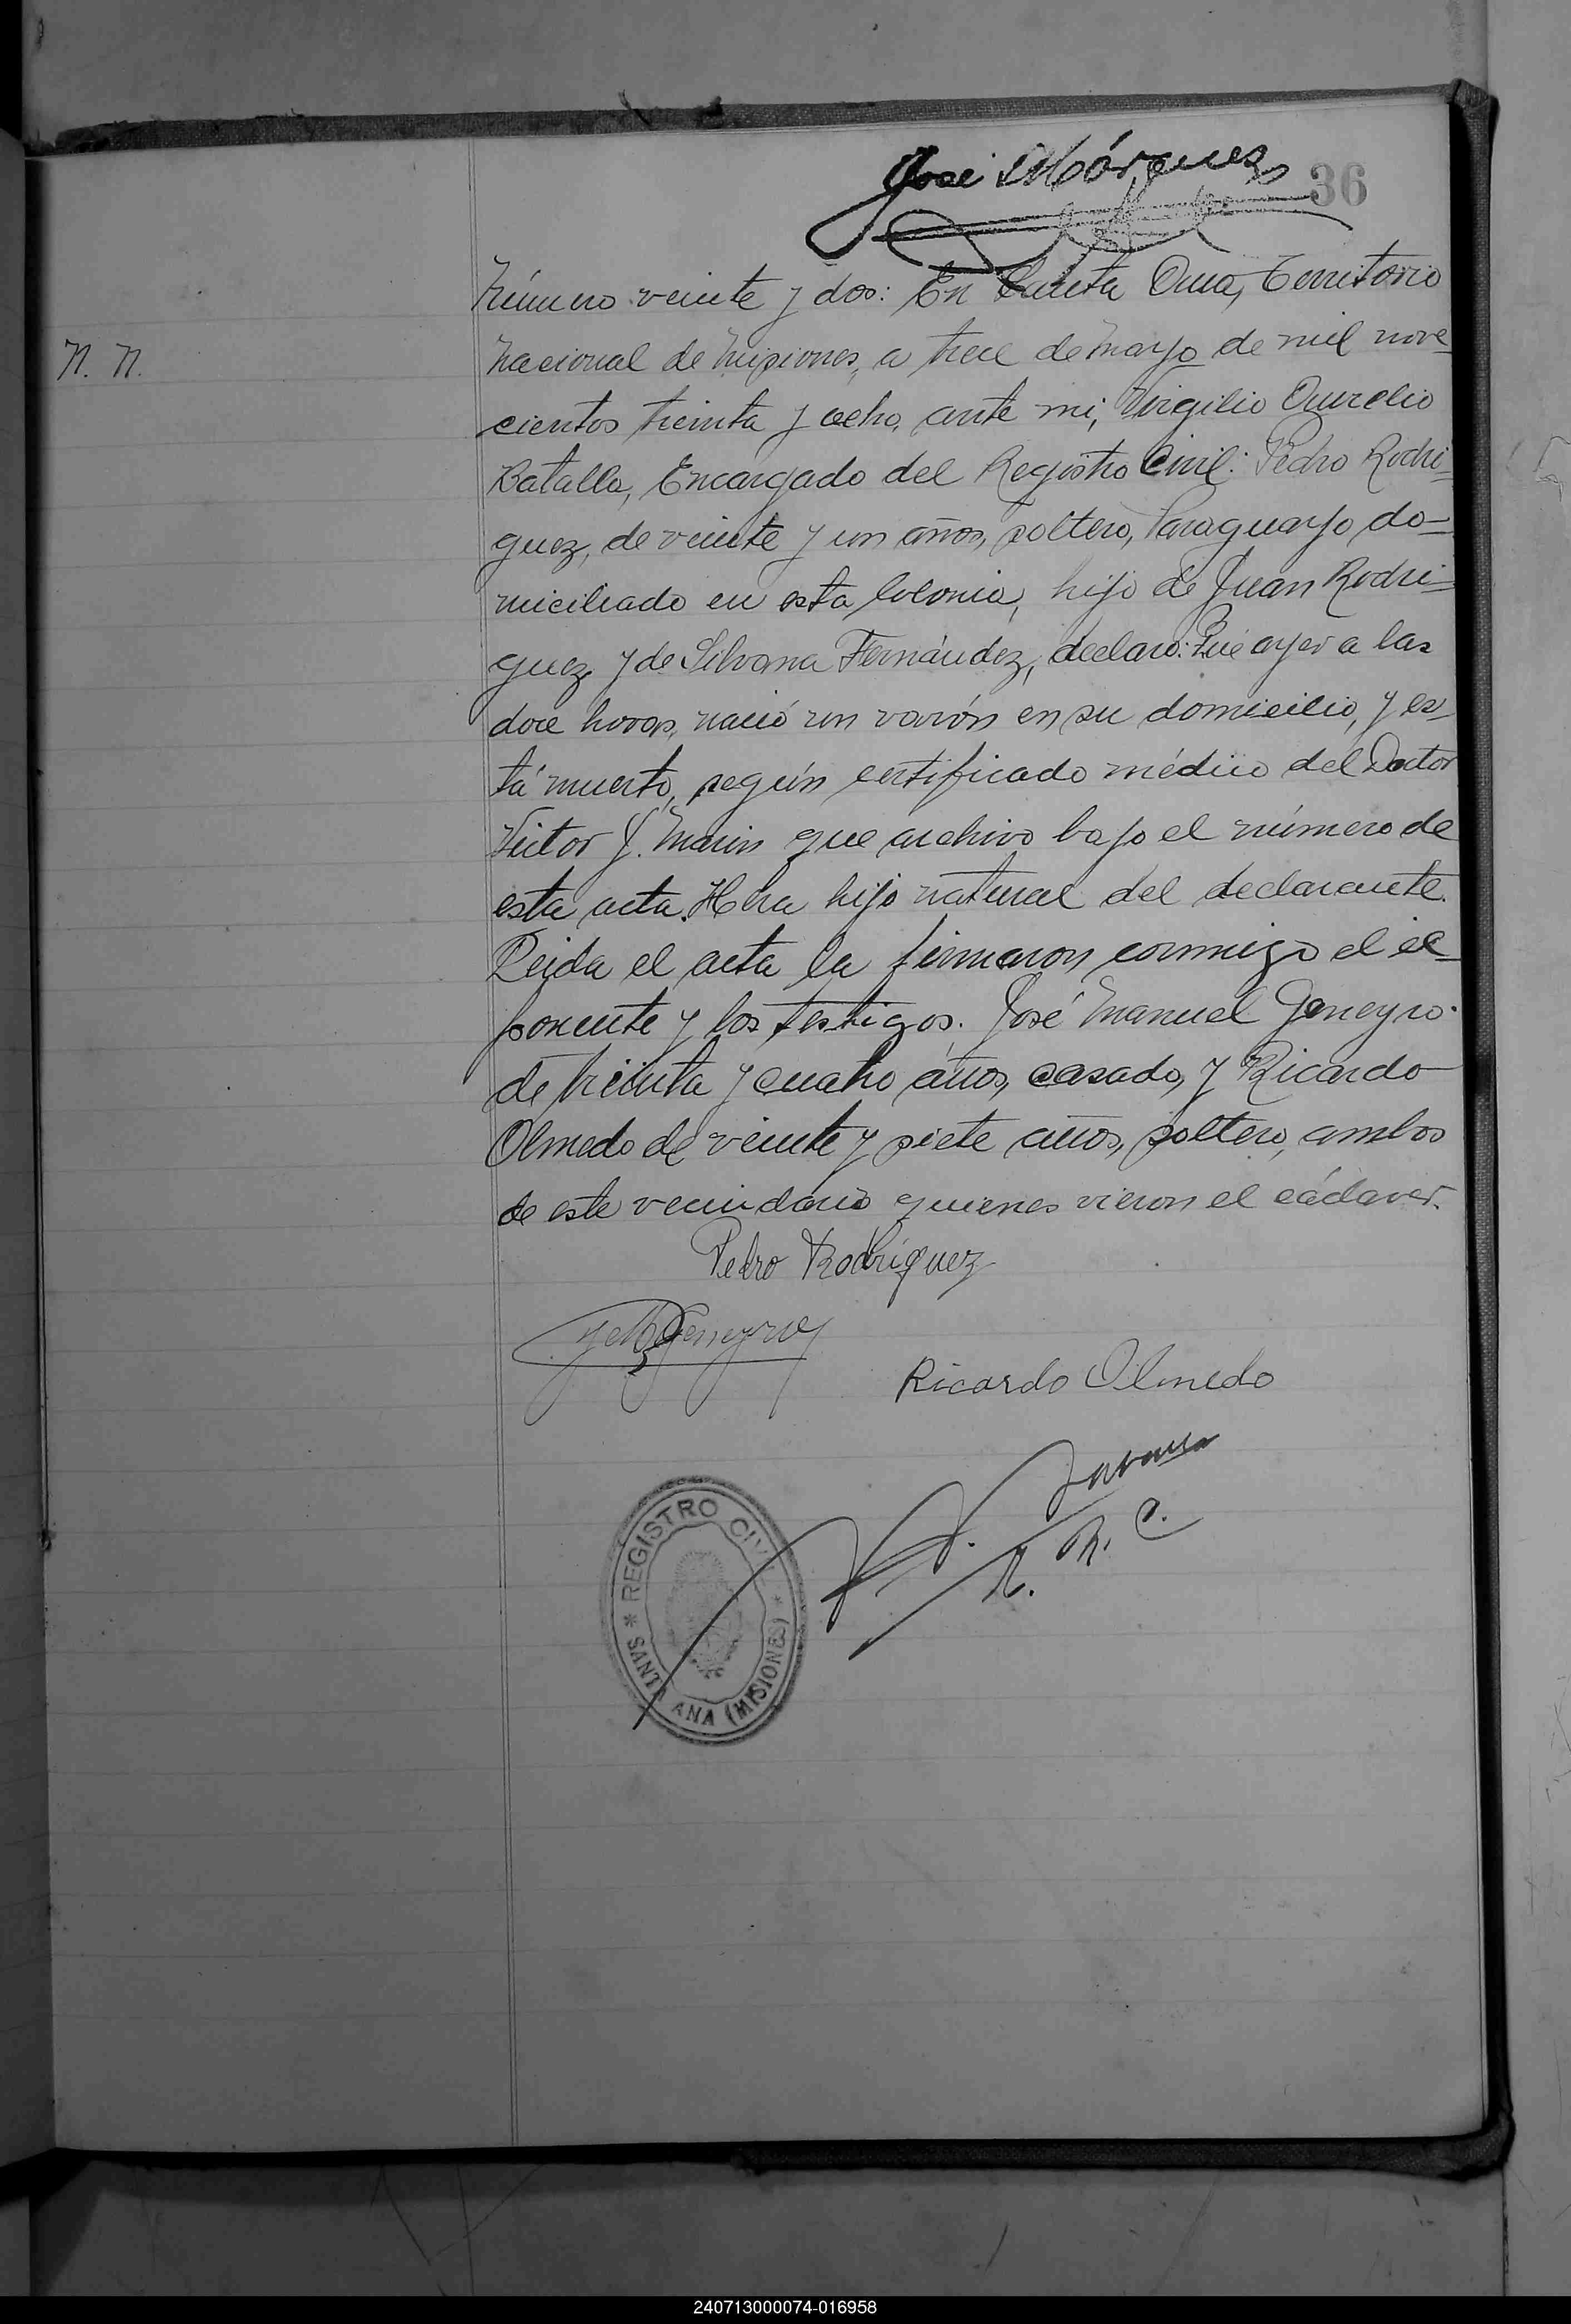 José Márquez
36
Número veinte y dos: En Santa Ana, Territorio
N. N.
Nacional de Misiones, a trece de Mayo de mil nove-
cientos treinta y ocho, ante mi, Virgilio Aurelio
Batalla, Encargado del Registro Civil: Pedro Rodri-
guez, de veinte y un años, soltero, Paraguayo do-
miciliado en esta Colonia, hijo de Juan Rodri-
guez y de Silvana Fernández, declaro: Que ayer a las
doce horas, nació un varón en su domicilio, y es-
tá muerto, según certificado médico del Doctor
Victor J. Marin que archivo bajo el número de
esta acta. Hera hijo natural del declarante.
Leida el acta la firmaron conmigo el ex-
ponente y los testigos. José Manuel Geneyro
de treinta y cuatro años, casado, y Ricardo
Olmedo de veinte y siete años, soltero, ambos
de este vecindario quienes vieron el cádaver.
Pedro Rodriguez
Geneyro
Ricardo Olmedo
R. C.
REGISTRO CIVIL
SANTA ANA (MISIONES)
240713000074-016958